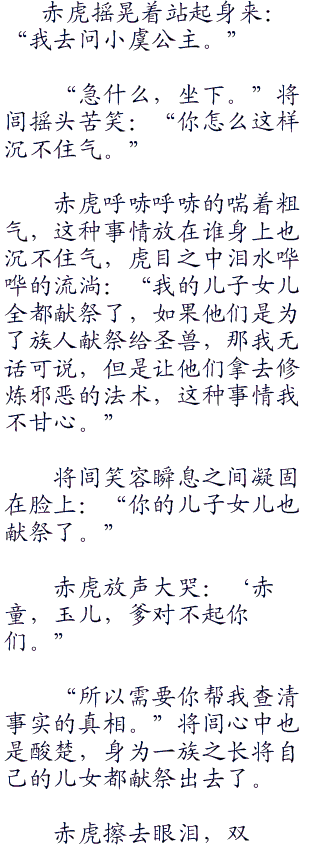 赤虎摇晃着站起身来：
“我去问小虞公主。”
“急什么，坐下。”将
闾摇头苦笑：“你怎么这样
沉不住气。”
赤虎呼哧呼哧的喘着粗
气，这种事情放在谁身上也
沉不住气，虎目之中泪水哗
哗的流淌：“我的儿子女儿
全都献祭了，如果他们是为
了族人献祭给圣兽，那我无
话可说，但是让他们拿去修
炼邪恶的法术，这种事情我
不甘心。”
将闾笑容瞬息之间凝固
在脸上：“你的儿子女儿也
献祭了。”
赤虎放声大哭：‘赤
童，玉儿，爹对不起你
们。”
“所以需要你帮我查清
事实的真相。”将闾心中也
是酸楚，身为一族之长将自
己的儿女都献祭出去了。
赤虎擦去眼泪，双